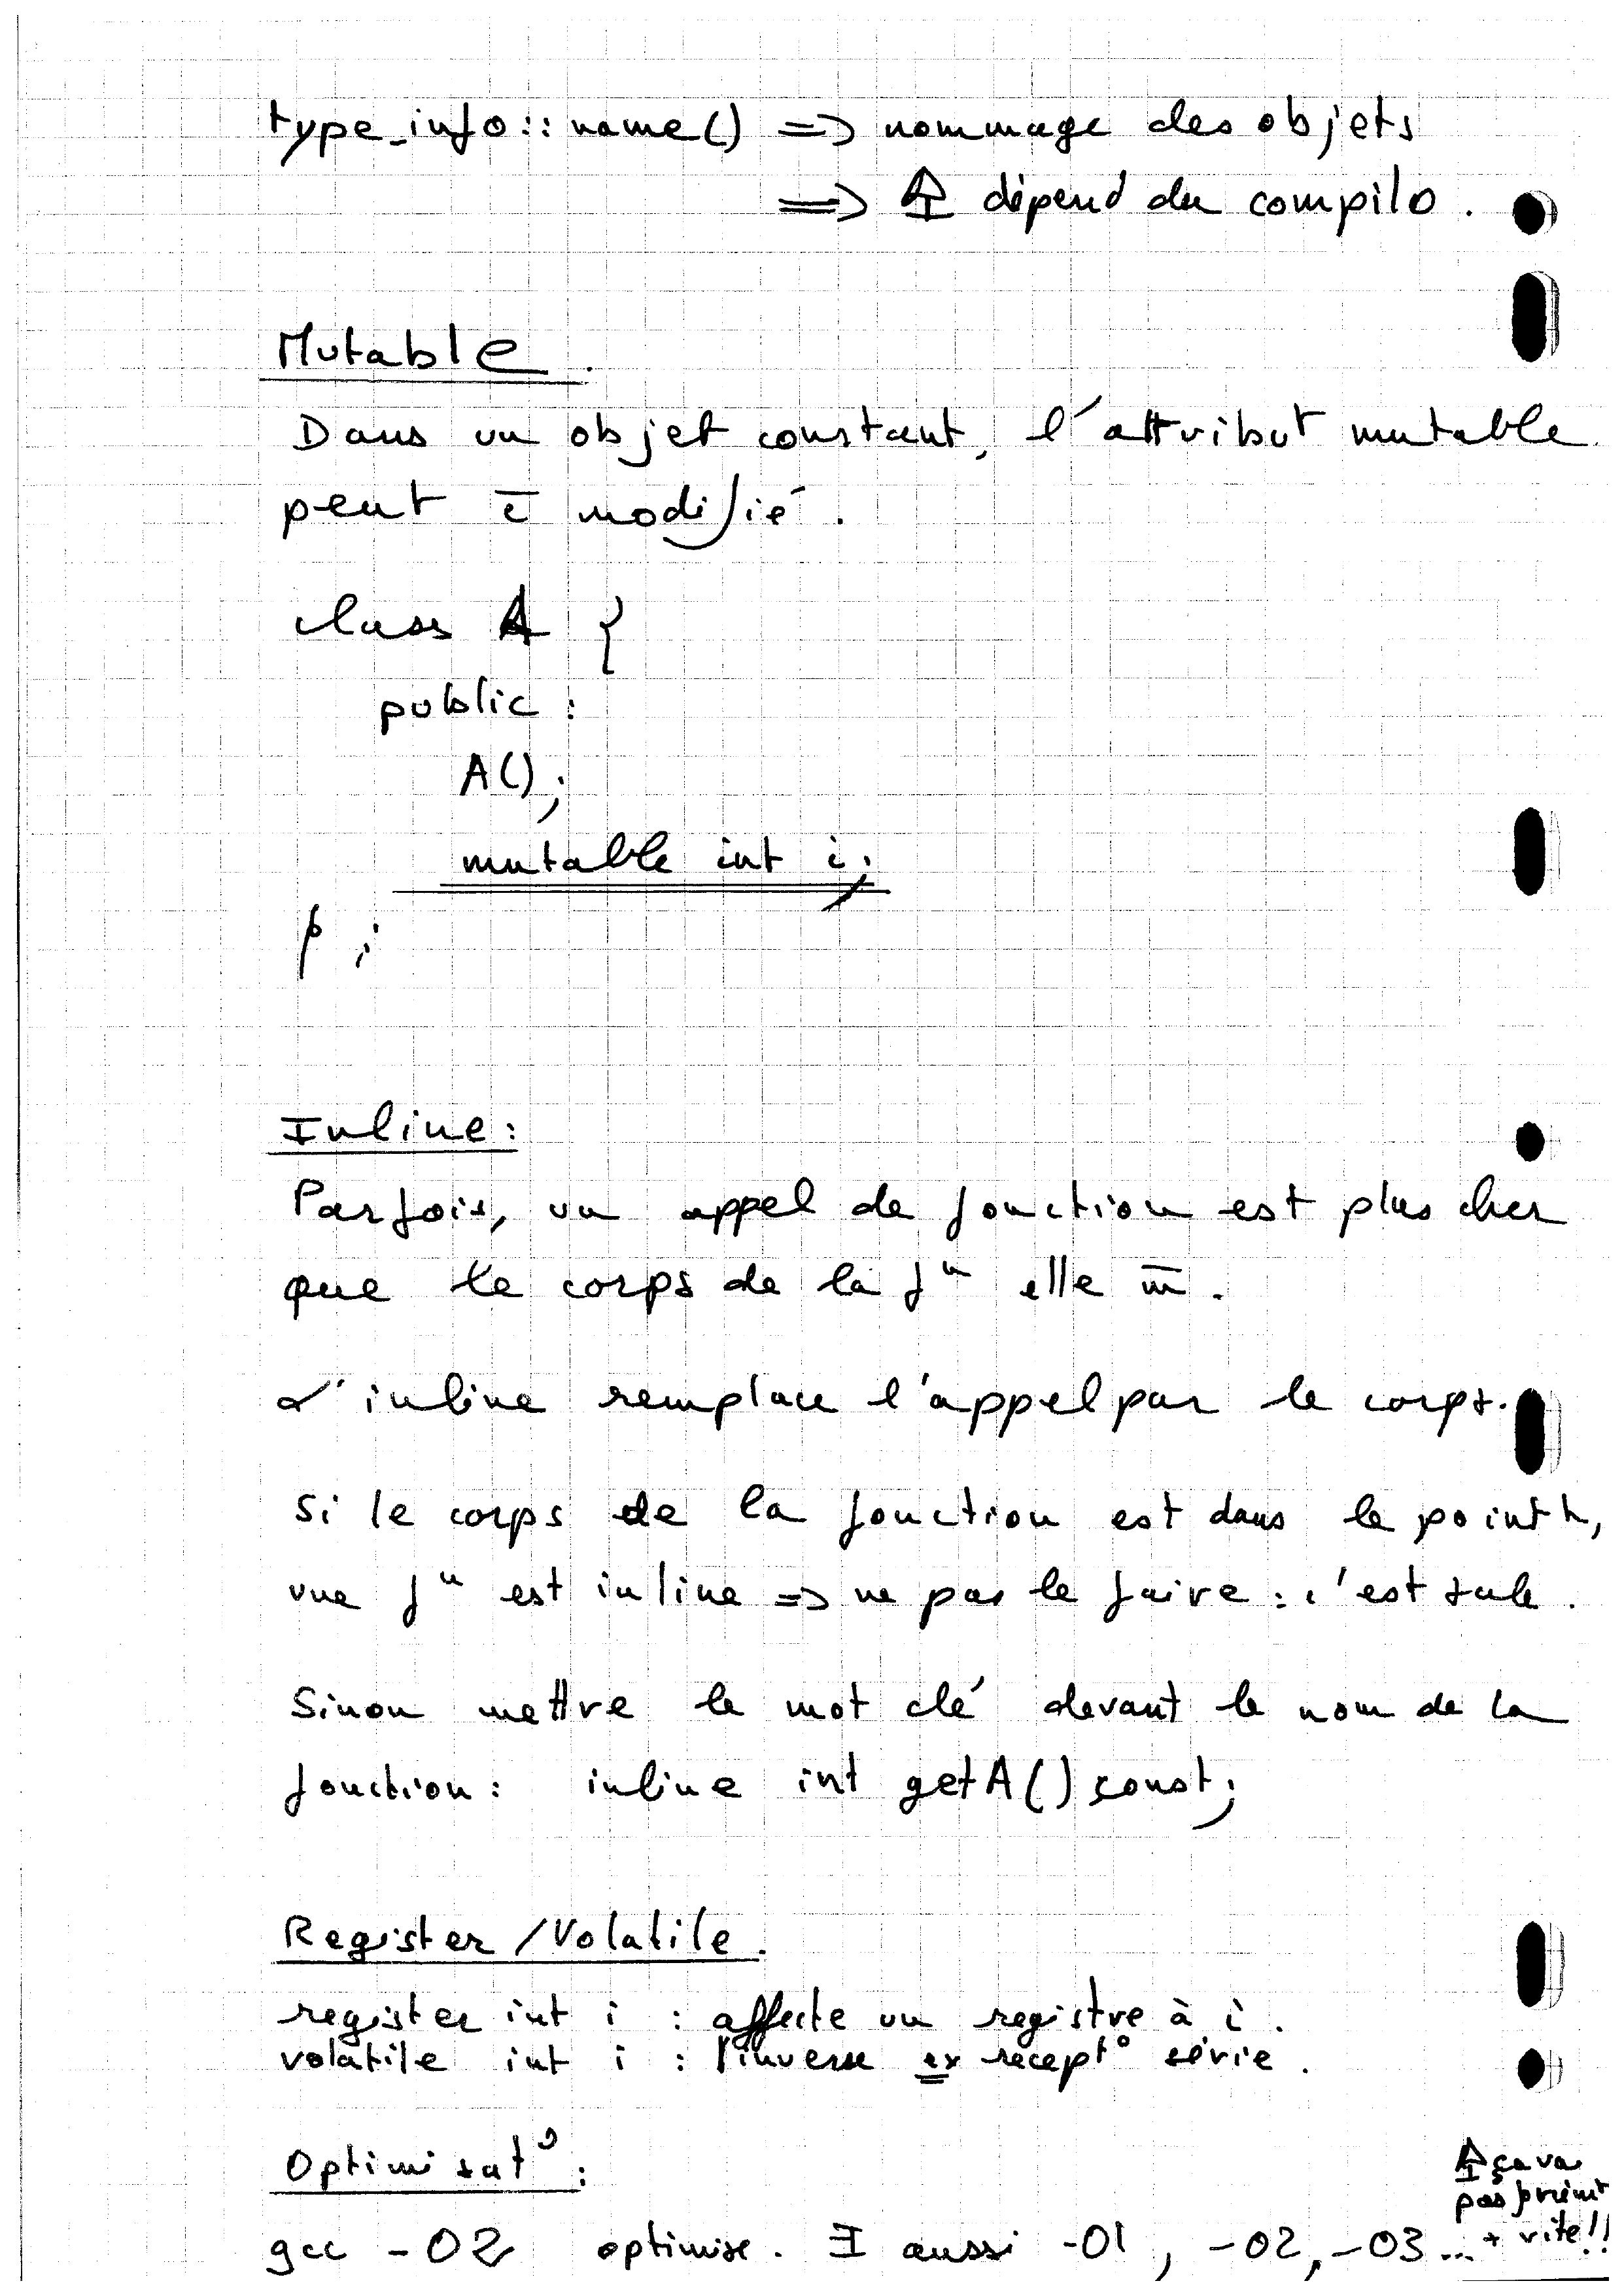 type_info::name() => nommage des objets
=> ⚠ dépend du compilo.
Mutable.
Dans un objet constant, l'attribut mutable
peut ē modifié.
class A {
public :
A();
mutable int i;
} ;
Inline :
Parfois, un appel de fonction est plus cher
que le corps de la fⁿ elle m̄.
L'inline remplace l'appel par le corps.
Si le corps de la fonction est dans le point h,
une fⁿ est inline => ne pas le faire : c'est sale.
Sinon mettre le mot clé devant le nom de la
fonction : inline int getA() const;
Register / Volatile.
register int i : affecte un registre à i.
volatile int i : l'inverse ex recept° série.
Optimisat° :
⚠ ça va
pas
+ vite!!
gcc -O2 optimise. ∃ aussi -O1, -O2, -O3...